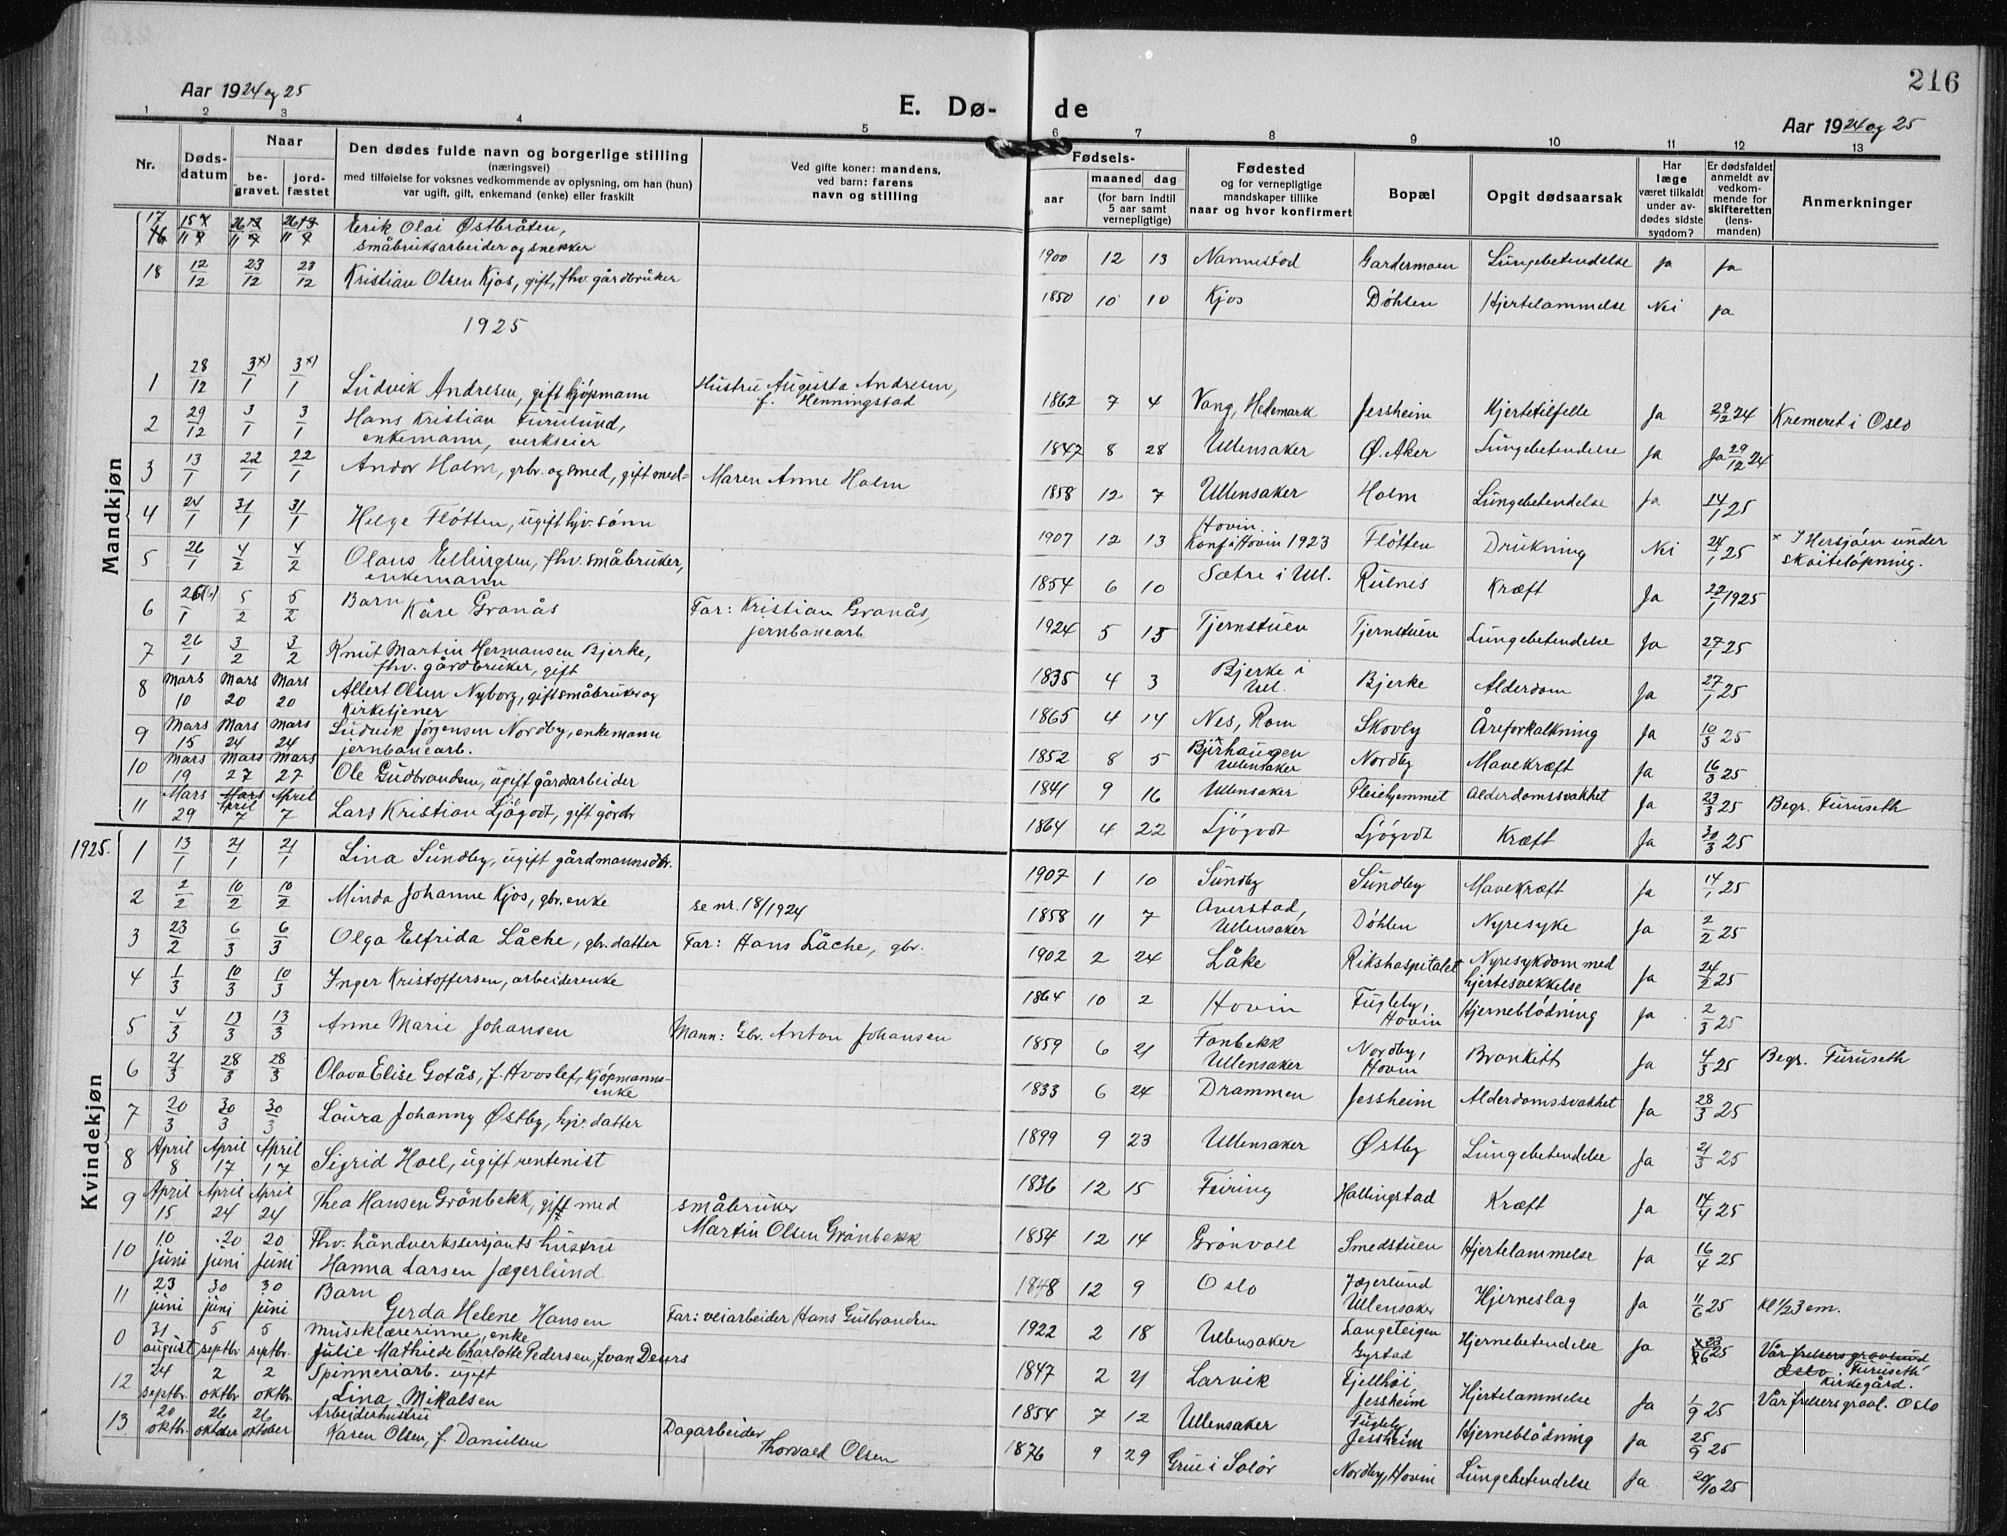 216
Aar 1924 og 25
E. Dø- de
Aar 1924 og 25
1 2 3 4 5 6 7 8 9 10 11 12 13
Nr. | Døds-datum | Naar be-gravet. | jord-fæstet | Den dødes fulde navn og borgerlige stilling (næringsvei) med tilføielse for voksnes vedkommende av oplysning, om han (hun) var ugift, gift, enkemand (enke) eller fraskilt | Ved gifte koner: mandens, ved barn: farens navn og stilling | Fødsels- aar | maaned | dag (for barn indtil 5 aar samt vernepligtige) | Fødested og for vernepligtige mandskaper tillike naar og hvor konfirmert | Bopæl | Opgit dødsaarsak | Har læge været tilkaldt under av-dødes sidste sygdom? | Er dødsfaldet anmeldt av vedkom-mende for skifteretten (lens-manden) | Anmerkninger
Mandkjøn
17 | Erik Olai Østbråten, småbruksarbeider og snekker | 1900 | 12 | 13 | Nannestad | Gardermoen | Lungebetendelse | ja | ja
18 | 12/12 | 23/12 | 23/12 | Kristian Olsen Kjos, gift, fhv. gårdbruker | 1850 | 10 | 10 | Kjos | Døhlen | Hjertelammelse | Nei | ja
1925
1 | 28/12 | 3x)/1 | 3x)/1 | Ludvik Andresen, gift kjøpmann | Hustru Augusta Andresen, f. Henningstad | 1862 | 7 | 4 | Vang, Hedemark | Jessheim | Hjertetilfelle | Ja | 29/12 24 | Kremeret i Oslo
2 | 29/12 | 3/1 | 3/1 | Hans Kristian Furulund, enkemann, verkseier | 1847 | 8 | 28 | Ullensaker | Ø. Aker | Lungebetendelse | Ja | Ja 29/12 24
3 | 13/1 | 22/1 | 22/1 | Andor Holm, grbr. og smed, gift med- | Maren Anne Holm | 1858 | 12 | 7 | Ullensaker | Holm | Lungebetendelse | Ja | 14/1 25
4 | 24/1 | 31/1 | 31/1 | Helge Fløtten, ugift hjv. sønn | 1907 | 12 | 13 | Hovin. Konf i Hovin 1923 | Fløtten | Drukning | Nei | 24/1 25 | x I Hersjøen under skøiteløpning.
5 | 26/1 | 4/2 | 4/2 | Olaus Ellingsen, fhv. småbruker, enkemann | 1854 | 6 | 10 | Sætre i Ul. | Rulnes | Kræft | Ja | 22/1 1925
6 | 5/2 | 5/2 | Barn Kåre Granås | Far: Kristian Granås, jernbanearb | 1924 | 5 | 15 | Tjernstuen | Tjernstuen | Lungebetendelse | Ja | 27/1 25
7 | 26/1 | 3/2 | 3/2 | Knut Martin Hermansen Bjerke, fhv. gårdbruker, gift | 1835 | 4 | 3 | Bjerke i Ul. | Bjerke | Alderdom | Ja | 27/1 25
8 | Mars 10 | Mars 20 | Mars 20 | Allert Olsen Nyborg, gift småbruker og Kirketjener | 1865 | 4 | 14 | Nes, Rom | Skovly | Åreforkalkning | Ja | 10/3 25
9 | Mars 15 | Mars 24 | Mars 24 | Ludvik Jørgensen Nordby, enkemann jernbanearb. | 1852 | 8 | 5 | Ullensaker | Nordby | Mavekræft | Ja | 16/3 25
10 | Mars 19 | Mars 27 | Mars 27 | Ole Gudbrandsen, ugift gårdsarbeider | 1841 | 9 | 16 | Ullensaker | Pleiehjemmet | Alderdomssvakhet | Ja | 23/3 25 | Begr. Furuseth
11 | Mars 29 | Mars April 7 | April 7 | Lars Kristian Ljøgodt, gift gårdbr | 1864 | 4 | 22 | Ljøgodt | Ljøgodt | Kræft | Ja | 30/3 25
Kvindekjøn
1925.
1 | 13/1 | 21/1 | 21/1 | Lina Sundby, ugift gårdmannsdtr. | 1907 | 1 | 10 | Sundby | Sundby | Mavekræft | Ja | 14/1 25
2 | 2/2 | 10/2 | 10/2 | Minda Johanne Kjos, gbr. enke | se nr. 18/1924 | 1858 | 11 | 7 | Averstad, Ullensaker | Døhlen | Nyresyke | Ja | 2/2 25
3 | 23/2 | 6/3 | 6/3 | Olga Elfrida Låche, gbr. datter | Far: Hans Låche, gbr. | 1902 | 2 | 24 | Låke | Rikshospitalet | Nyresykdom med hjertesvekkelse | Ja | 24/2 25
4 | 1/3 | 10/3 | 10/3 | Inger Kristoffersen, arbeiderenke | 1864 | 10 | 2 | Hovin | Fugleby, Hovin | Hjerneblødning | Ja | 2/3 25
5 | 4/3 | 13/3 | 13/3 | Anne Marie Johansen | Mann: Gbr. Anton Johansen | 1859 | 6 | 21 | Fonbekk Ullensaker | Nordby, Hovin | Bronkitt | Ja | 4/3 25 | Begr. Furuseth
6 | 21/3 | 28/3 | 28/3 | Olava Elise Gotås, f. Hvoslef, kjøpmanns-enke | 1833 | 6 | 24 | Drammen | Jessheim | Alderdomssvakhet | Ja | 28/3 25
7 | 20/3 | 30/3 | 30/3 | Laura Johanny Østby, hjv. datter | 1899 | 9 | 23 | Ullensaker | Østby | Lungebetendelse | Ja | 21/3 25
8 | April 8 | April 17 | April 17 | Sigrid Hoel, ugift rentenist | 1836 | 12 | 15 | Feiring | Hallingstad | Kræft | Ja | 14/4 25
9 | April 15 | April 24 | April 24 | Thea Hansen Grønbekk, gift med | småbruker Martin Olsen Grønbekk | 1854 | 12 | 14 | Grønvoll | Smedstuen | Hjertelammelse | Ja | 16/4 25
10 | 10 Juni | 20 juni | 20 Juni | Fhv. håndverkssersjants hustru Hanna Larsen Jægerlund | 1848 | 12 | 9 | Oslo | Jægerlund Ullensaker | Hjerneslag | Ja | 11/6 25 | Kl 1/2 3 em.
11 | 23 juni | 30 juni | 30 juni | Barn Gerda Helene Hansen | Far: veiarbeider Hans Gulbrandsen | 1922 | 2 | 18 | Ullensaker | Langeteigen Gystad | Hjernebetendelse | Ja | 23/6 25 | Vår frelsers gravlund Oslo Furuseth Kirkegård.
0 | 31 august | 5 septbr | 5 septbr. | Musiklærerinne, enke Julie Mathilde Charlotte Pedersen, f. van Deurs | 1847 | 2 | 21 | Larvik | Fjellhøi Jessheim | Hjertelammelse | Ja | 1/9 25 | Vår frelsers gravl. Oslo
12 | 24 septbr. | 2 oktbr | 2 oktbr. | Spinneriarb. ugift Lina Mikalsen | 1854 | 7 | 12 | Ullensaker | Fugleby Jessheim | Hjerneblødning | Ja | 25/9 25
13. | 20 oktbr. | 26 oktober | 26 oktober | Arbeiderhustru Karen Olsen, f. Danielsen | Dagarbeider Thorvald Olsen | 1876 | 9 | 29 | Grue i Solør | Nordby, Hovin | Lungebetendelse | Ja | 20/10 25